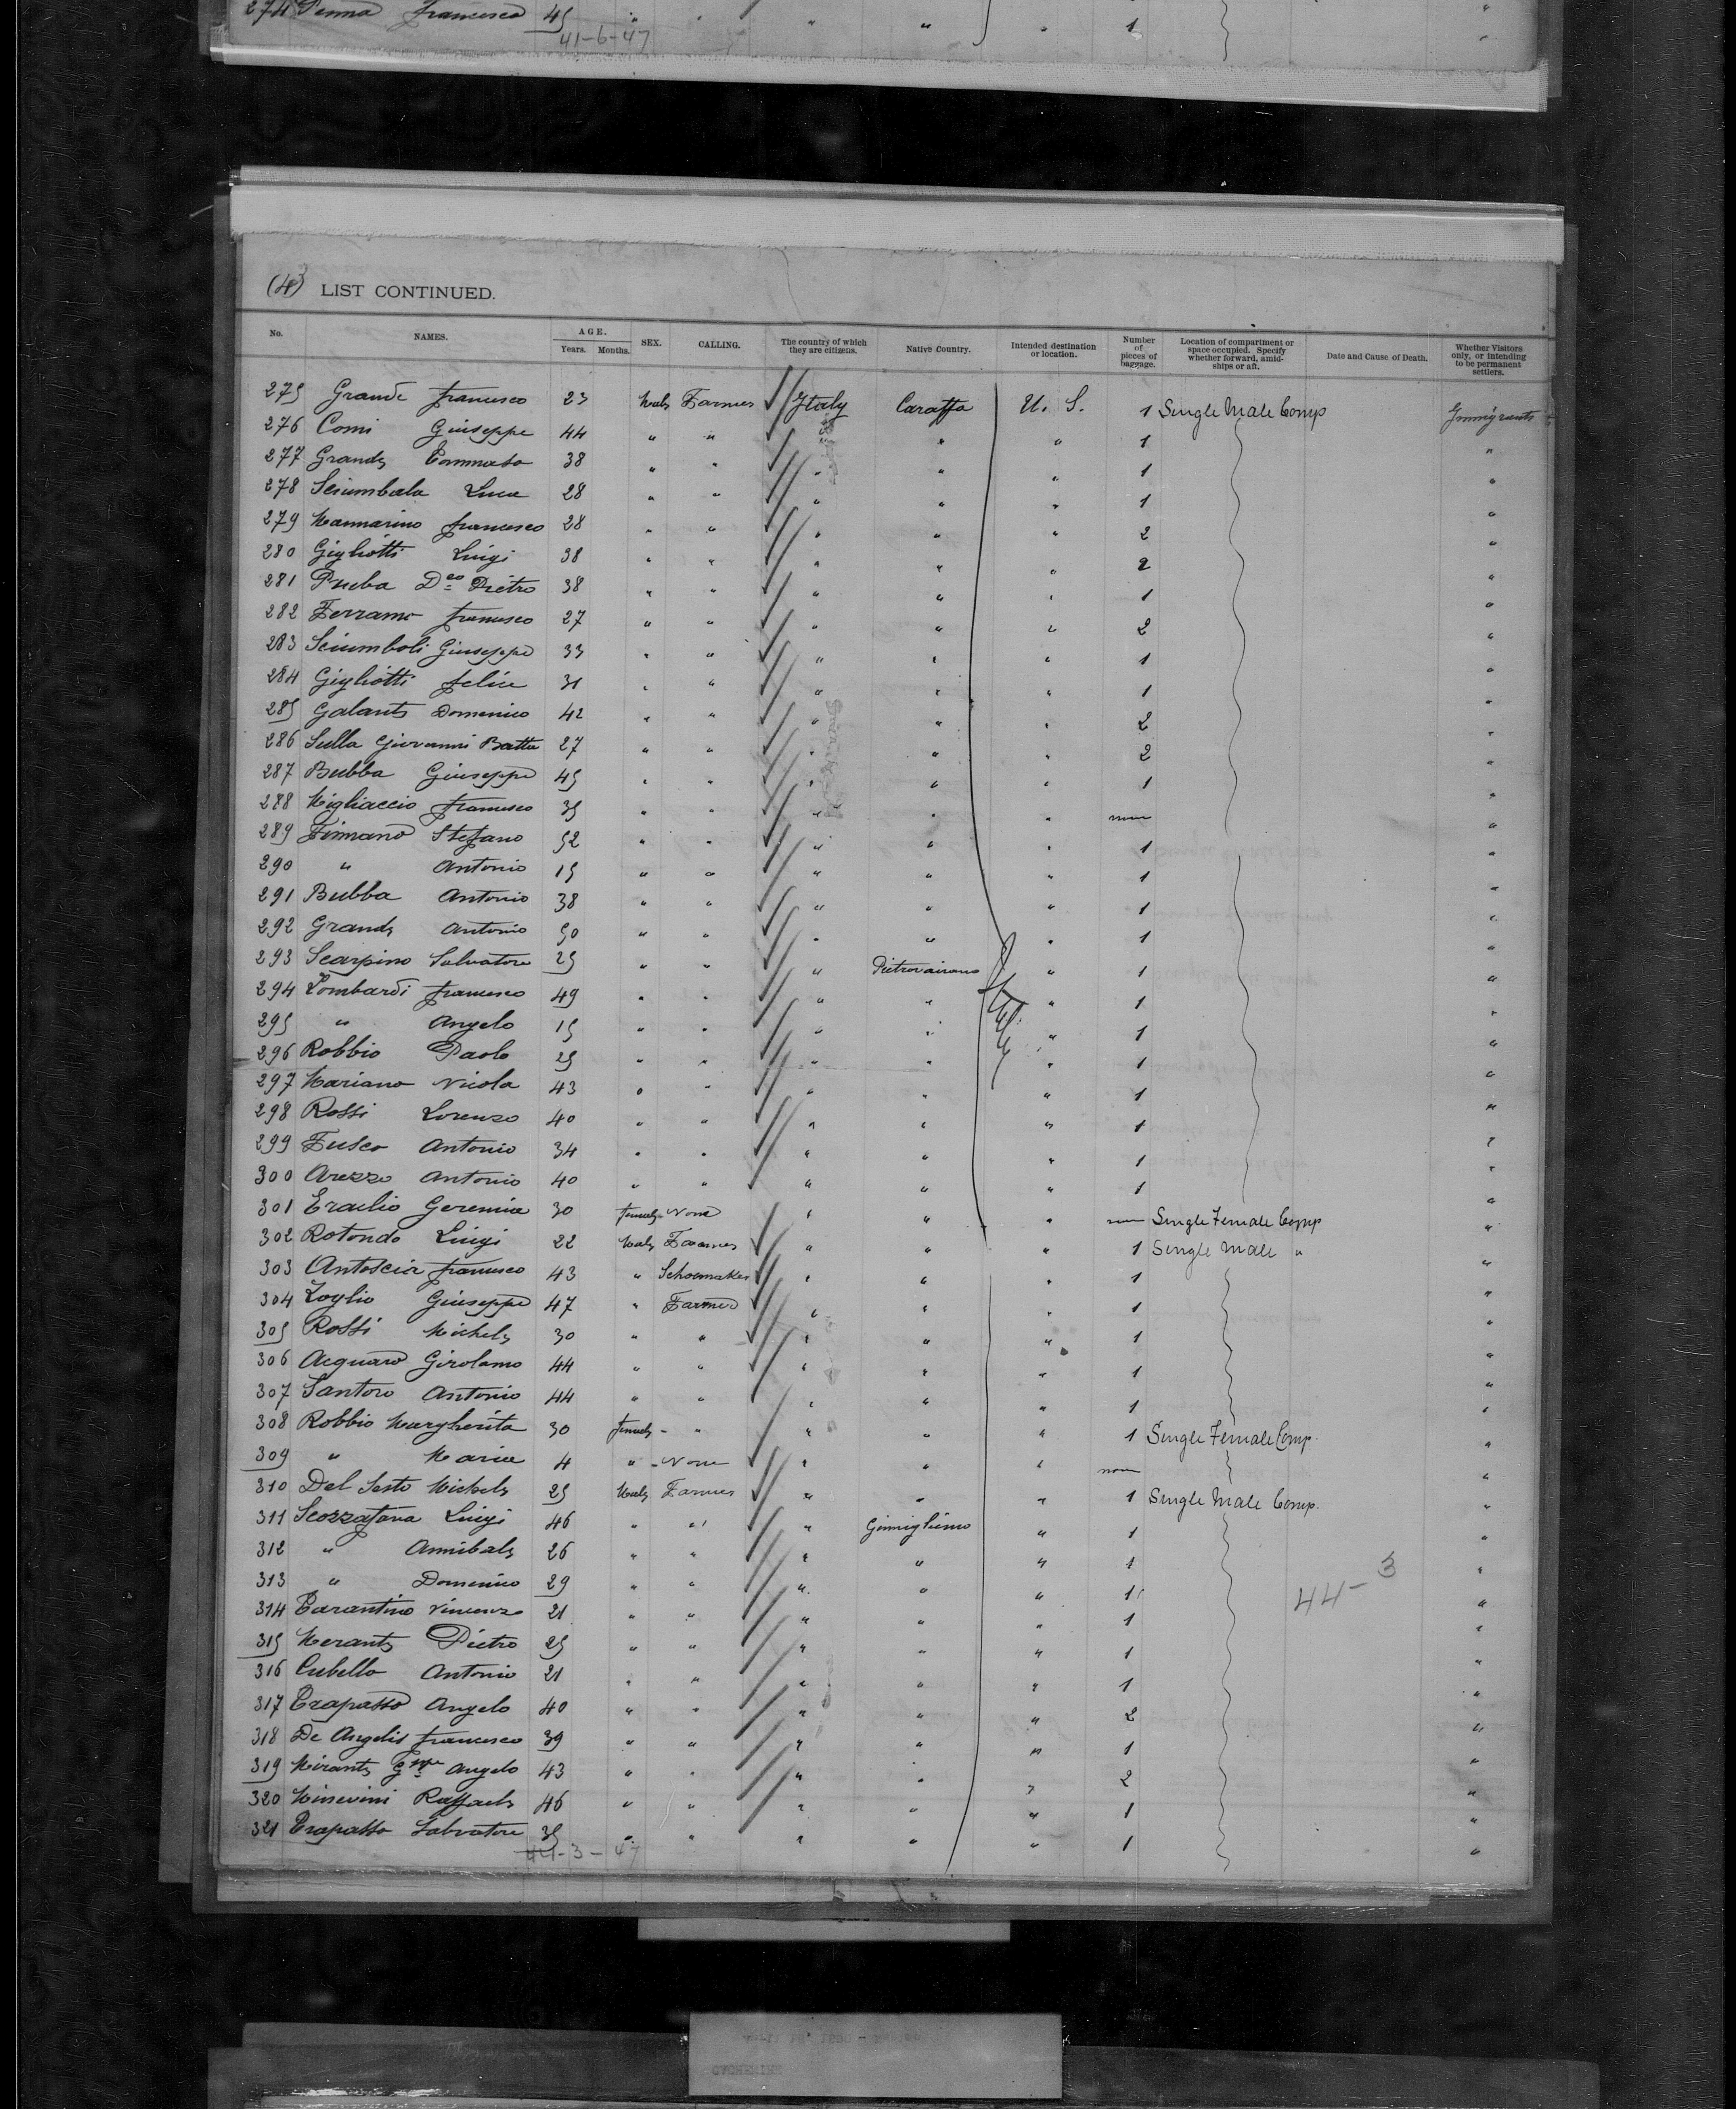 274 Penna Francesco 45 " " " " " 1 "
41-6-47
(4) 3 LIST CONTINUED.
No. NAMES. AGE. Years. Months. SEX. CALLING. The country of which they are citizens. Native Country. Intended destination or location. Number of pieces of baggage. Location of compartment or space occupied. Specify whether forward, amidships or aft. Date and Cause of Death. Whether Visitors only, or intending to be permanent settlers.
275 Grande Francesco 23 Male Farmer Italy Caraffa U. S. 1 Single Male Comp Immigrants
276 Comi Giuseppe 44 " " " " " 1 "
277 Grande Tommaso 38 " " " " " 1 "
278 Sciumbala Luca 28 " " " " " 1 "
279 Mannarino Francesco 28 " " " " " 2 "
280 Gigliotti Luigi 38 " " " " " 2 "
281 Dco Pietro 38 " " " " " 1 "
282 Ferramo Francesco 27 " " " " " 2 "
283 Sciumboli Giuseppe 33 " " " " " 1 "
284 Gigliotti Felice 31 " " " " " 1 "
285 Galante Domenico 42 " " " " " 2 "
286 Sulla Giovanni Batta 27 " " " " " 2 "
287 Bubba Giuseppe 45 " " " " " 1 "
288 Migliaccio Francesco 35 " " " " " none "
289 Stefano 52 " " " " " 1 "
290 " Antonio 15 " " " " " 1 "
291 Bubba Antonio 38 " " " " " 1 "
292 Grande Antonio 50 " " " " " 1 "
293 Scarpino Salvatore 25 " " " Pietravairano " 1 "
294 Lombardi Francesco 49 " " " " " 1 "
295 " Angelo 15 " " " " " 1 "
296 Robbio Paolo 25 " " " " " 1 "
297 Mariano Nicola 43 " " " " " 1 "
298 Rossi Lorenzo 40 " " " " " 1 "
299 Fusco Antonio 34 " " " " " 1 "
300 Arezzo Antonio 40 " " " " " 1 "
301 Eraclio Geremia 30 Female None " " " none Single Female Comp "
302 Rotondo Luigi 22 Male Farmer " " " 1 Single Male " "
303 Antoscia Francesco 43 " Schoemaker " " " 1 "
304 Zoglio Giuseppe 47 " Farmer " " " 1 "
305 Rossi Michele 30 " " " " " 1 "
306 Acquaro Girolamo 44 " " " " " 1 "
307 Santoro Antonio 44 " " " " " 1 "
308 Robbio Margherita 30 Female " " " " 1 Single Female Comp. "
309 " Maria 4 " None " " " none "
310 Del Sesto Michele 25 Male Farmer " " " 1 Single Male Comp. "
311 Scozzafava Luigi 46 " " " Gimigliano " 1 "
312 " Annibale 26 " " " " " 1 "
313 " Domenico 29 " " " " " 1 44-3 "
314 Tarantino Vincenzo 21 " " " " " 1 "
315 Merante Pietro 25 " " " " " 1 "
316 Cubello Antonio 21 " " " " " 1 "
317 Trapasso Angelo 40 " " " " " 2 "
318 De Angelis Francesco 39 " " " " " 1 "
319 Mirante Gppe Angelo 43 " " " " " 2 "
320 Minervini Raffaele 46 " " " " " 1 "
321 Trapasso Salvatore 35 " " " " " 1 "
44-3-47